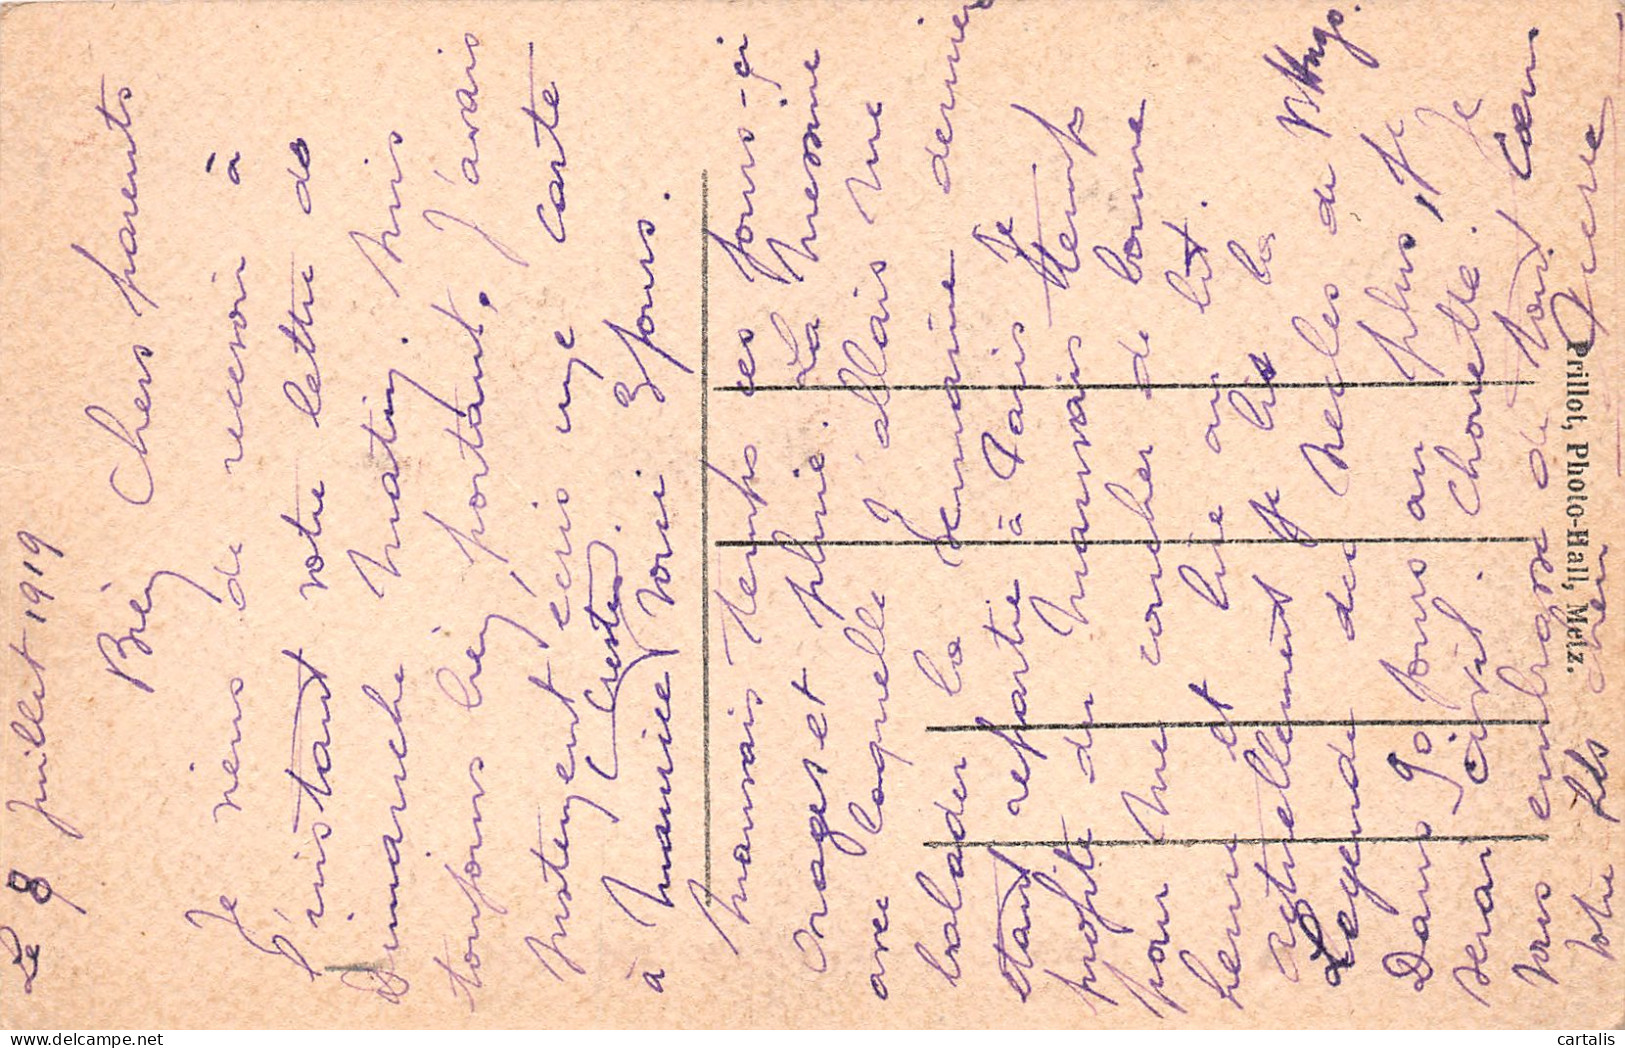 Le 8 juillet 1919
Bien Chers parents
Je viens de recevoir à
l'instant votre lettre de
Dimanche matin. Suis
toujours bien portant, J'avais
justement écris une carte
à Maurice (Crest). Voici 3 jours.
mauvais temps ces jours-çi
orages et pluie. La Messine
avec laquelle J'allais me
balader la semaine dernière
étant repartie à Paris Je
profite du mauvais temps
pour me coucher de bonne
heure et lire au lit.
actuellement je lis la
Légende des siècles de V Hugo.
Dans 90 jours au plus Je
serai civil. Chouette. Je
vous embrasse de tout Cœur
Votre fils
Pierre
Prillot, Photo-Hall, Metz.
cartalis